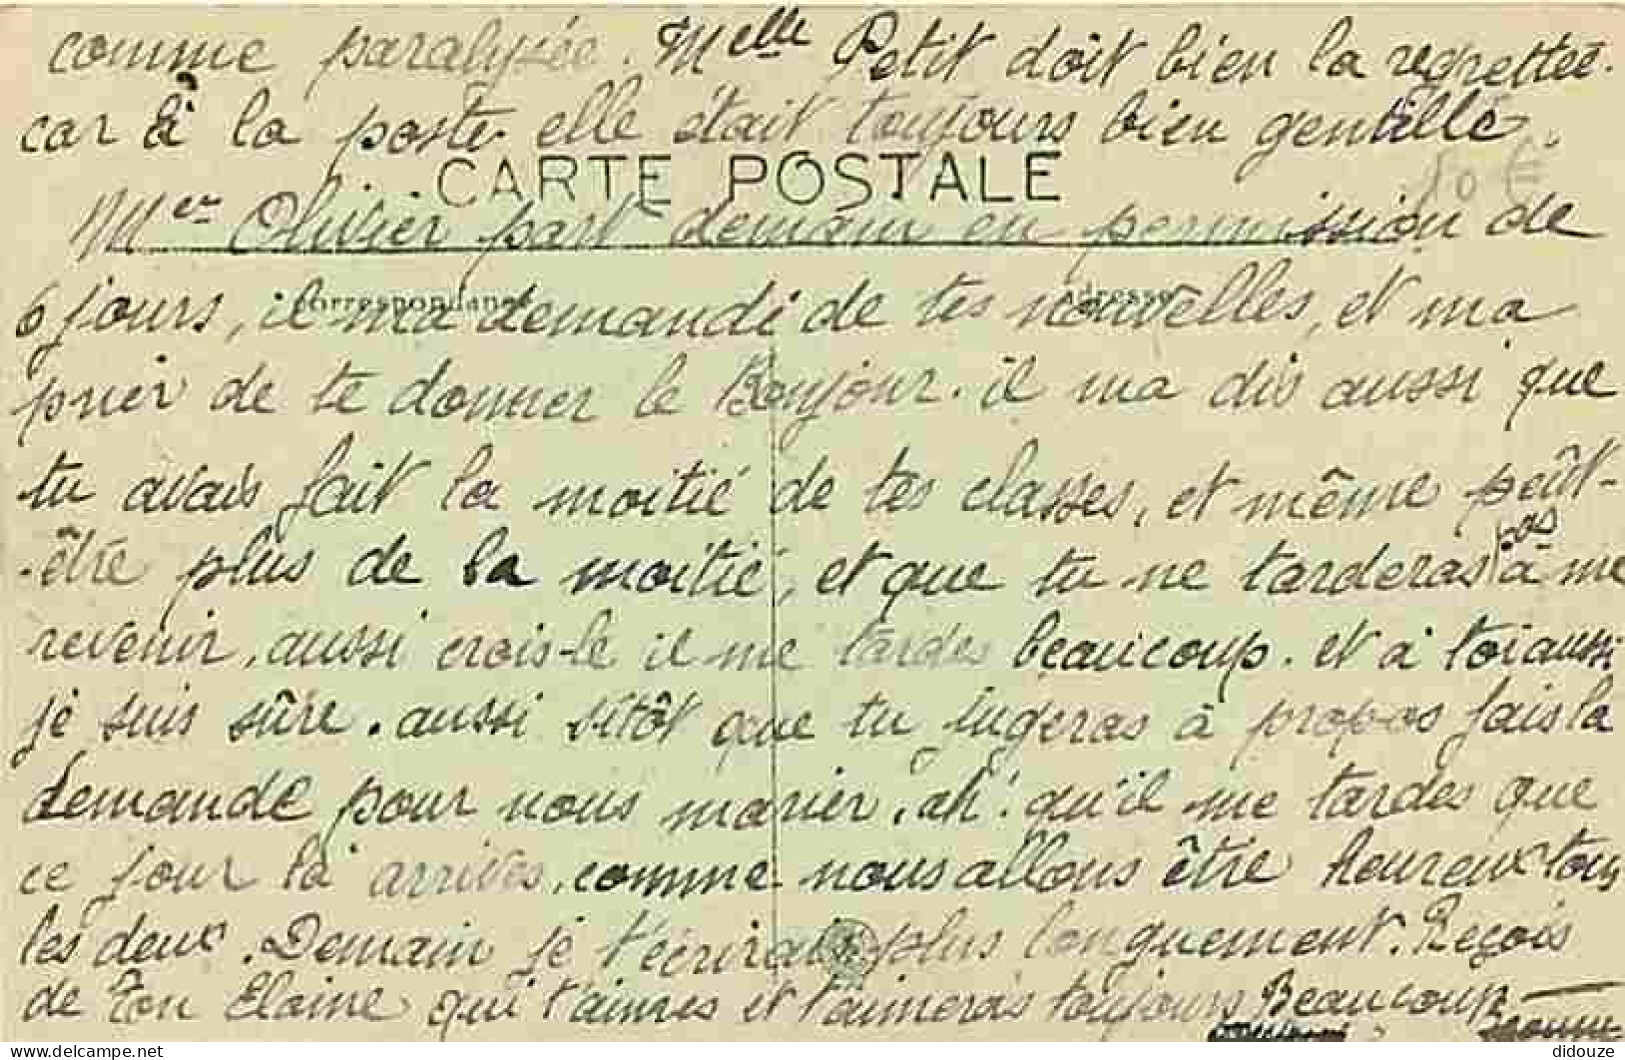 comme paralysée. Melle Petit doit bien la regrettée.
car à la poste elle était toujours bien gentille.
CARTE POSTALE
10 €
Mer Olivier part demain en permission de
Correspondance
Adresse
6 jours, il ma demandé de tes nouvelles, et ma
prier de te donner le Bonjour. il ma dis aussi que
tu avais fait la moitié de tes classes, et même peût-
-être plus de la moitié, et que tu ne tarderas pas à me
revenir, aussi crois-le il me tardes beaucoup. et à toi aussi
je suis sûre. aussi sitôt que tu jugeras à propos fais la
demande pour nous marier, ah! qu'il me tardes que
ce jour là arrives, comme nous allons être heureux tous
les deux. Demain je t'écrirais plus longuement. Reçois
de Ton Elaine qui t'aimes et t'aimeras toujours Beaucoup
delcampe.net
didouze